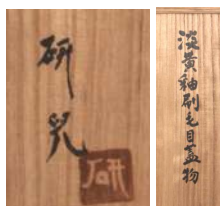 研児
淡黄釉刷毛目蓋物